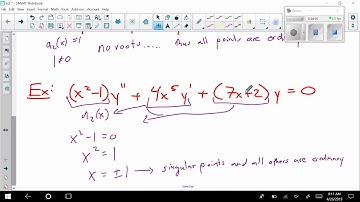 a₂(x) = 1
no roots..... thus all points are ordinary
1 ≠ 0
Ex: (x²-1)y'' + 4x⁵y' + (7x+2)y = 0
a₂(x)
x²-1=0
x² = 1
x = ±1 → singular points and all others are ordinary
8:11 AM
4/25/2019